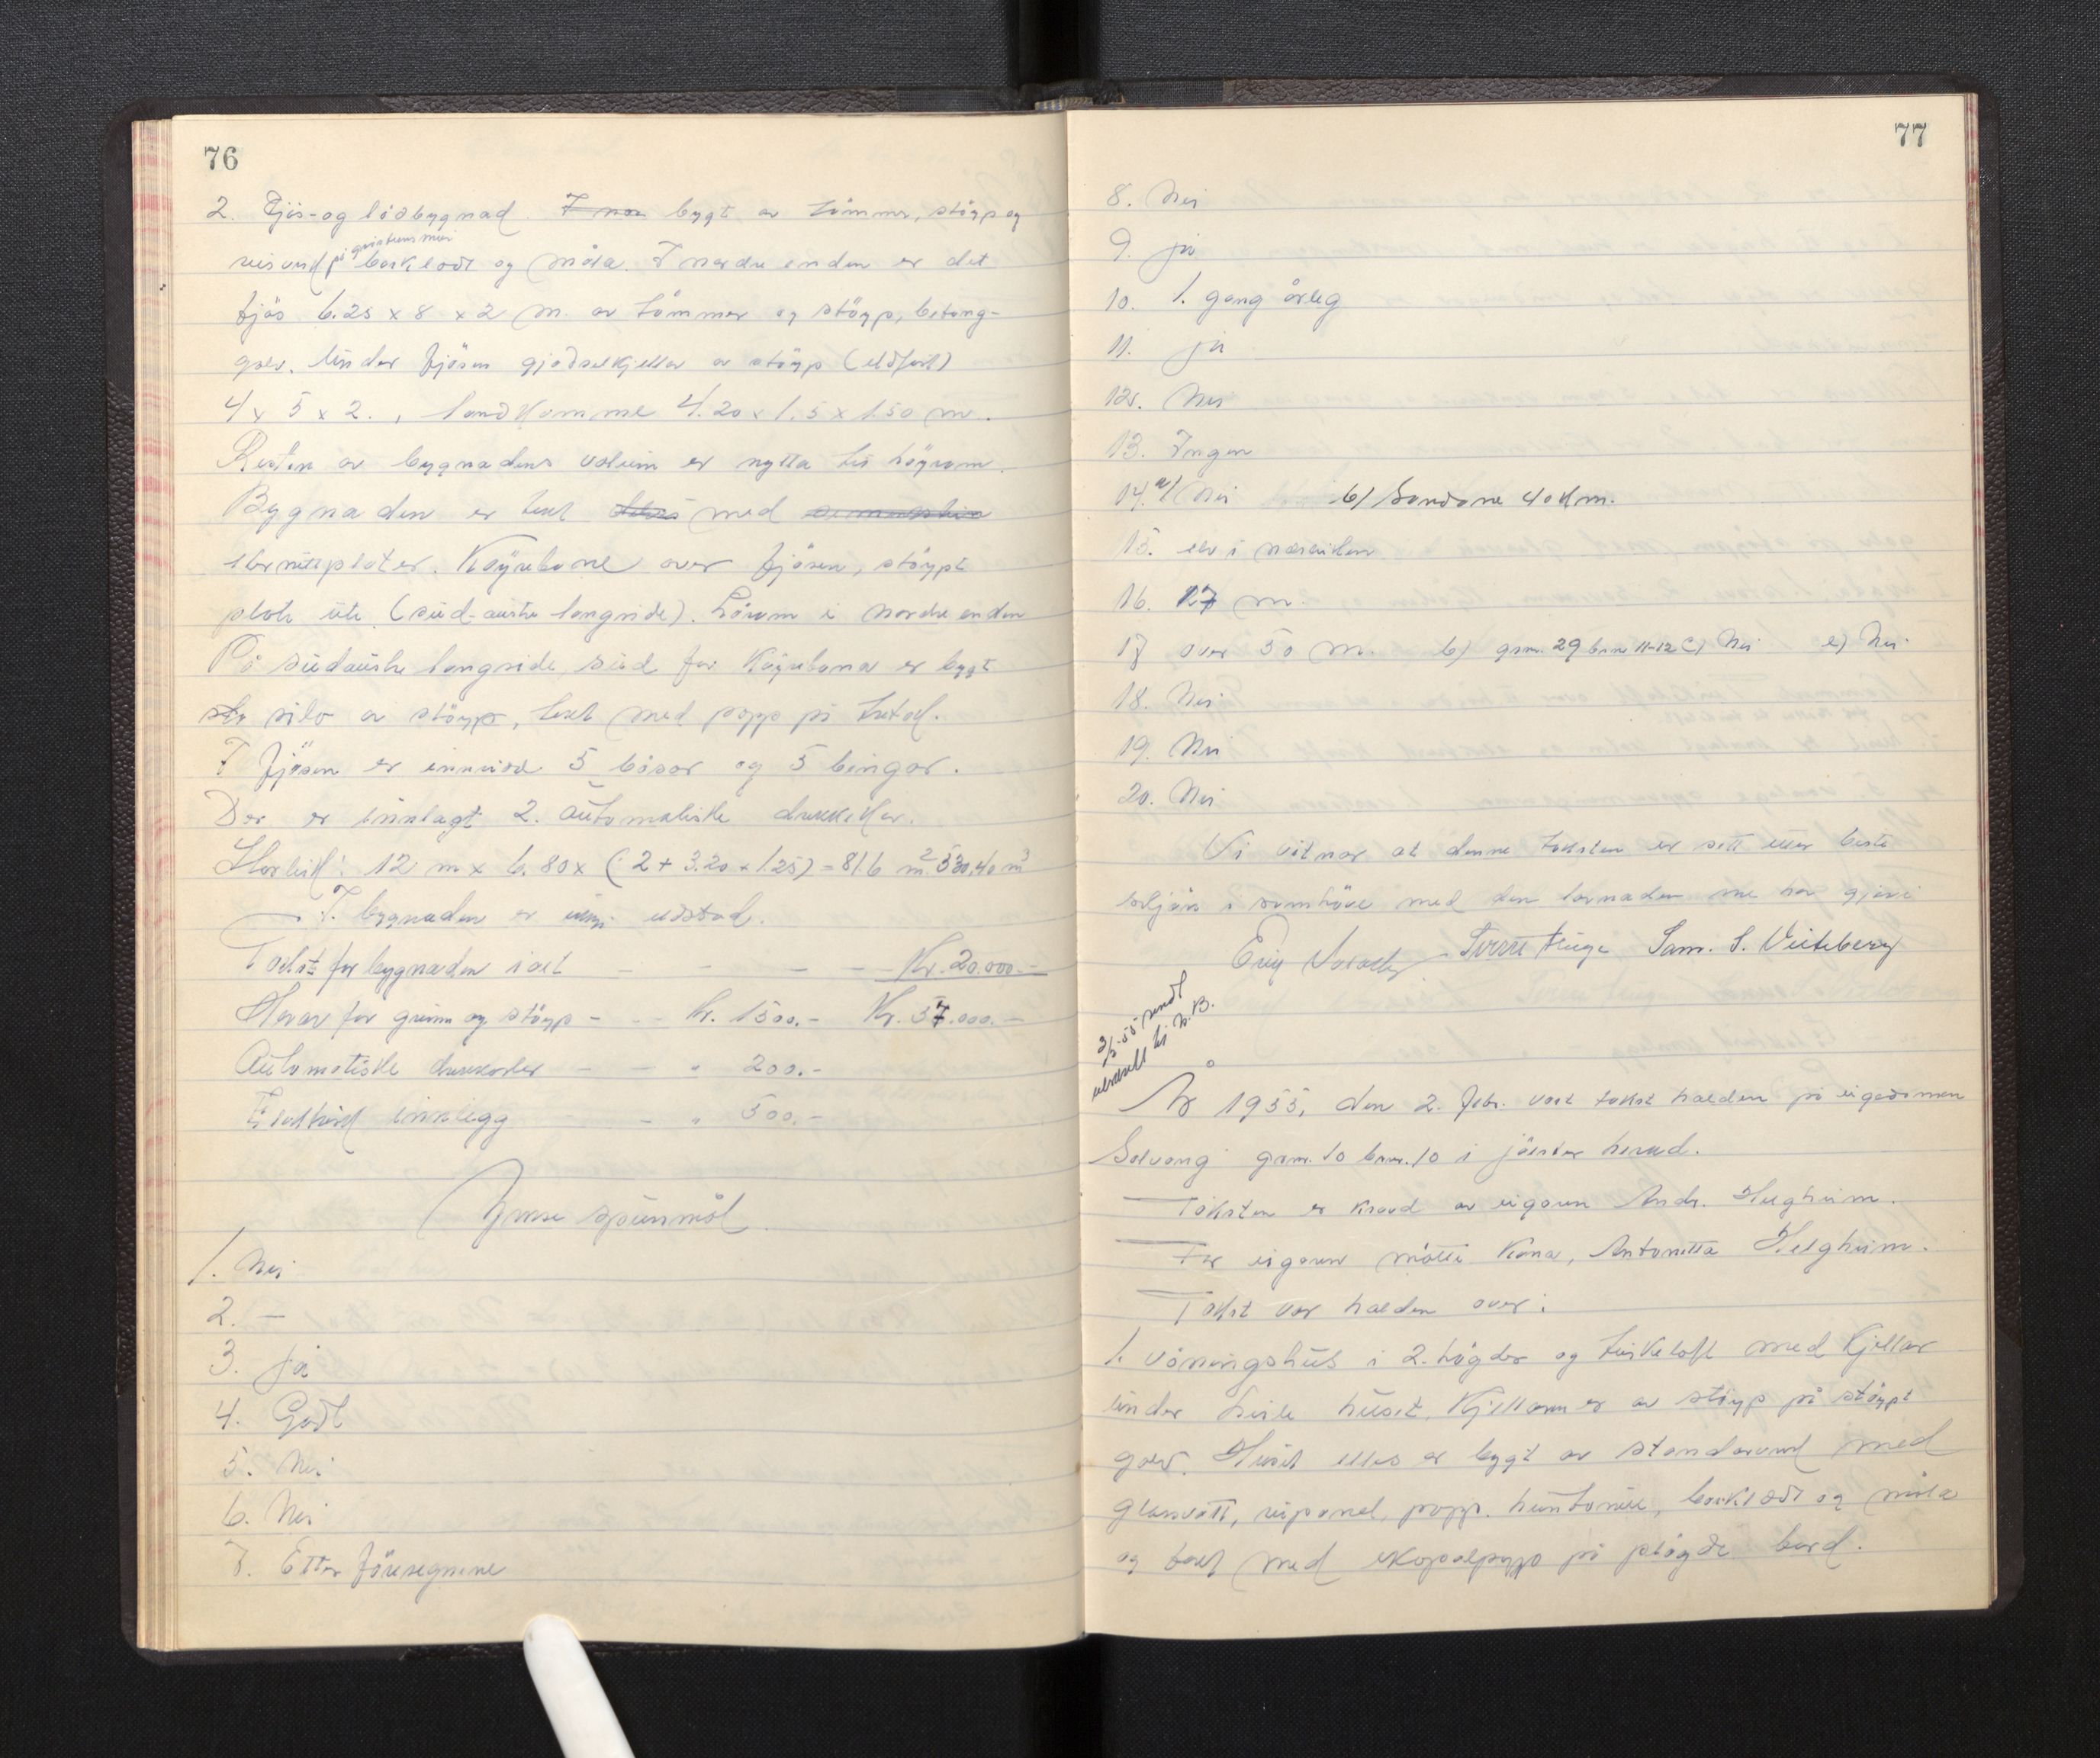 76
2. Fjøs- og lødbygnad. I nor bygt av tömmer, stöyp og
reisverk på grinsteins mur borklædt og måla. I nordre enden er det
fjös 6.25 x 8 x 2 m. av tömmer og stöyp, betong-
golv. Under fjösen gjødselkjellar av stöyp (eldfast)
4 x 5 x 2., landkumme 4.20 x 1.5 x 1.50 m.
Resten av bygnadens volum er nytta til höyrom.
Bygnaden er tekt med
eternittplater. Köyrebane over fjösen, stöypt
plate ute (süd-austre langside). Låvem i nordre enden
På südaustre langside, süd for Köyrebana er bygt
silo av stöyp, tekt med papp på tretak.
I fjösen er innreidd 5 båsar og 5 bingar.
Der er innlagt 2. automatiske drikkekar.
Storleik: 12 m x 6.80 x (2 + 3.20 + 1.25) = 81.6 m² 530,40 m³
I bygnaden er ingi eldstad.
Takst for bygnaden i alt — - - — Kr. 20.000.—
Herav for grunn og stöyp - - - kr. 1500.- Kr. 57.000.—
Automatiske drikkekar - — " 200.-
Elektrisk innlegg - - " 500.-
Ymse spursmål
1. Nei
2. —
3. ja
4. Godt
5. Nei
6. Nei
7. Etter föresegnene
77
8. Nei
9. ja
10. 1. gong årleg
11. ja
12. Nei
13. Ingen
14. a/ Nei b/ Sandane 40 km.
15. elv i nærleiken
16. 17 m.
17 over 50 m. b) gnr. 29 bnr 11-12 C) Nei e) Nei
18. Nei
19. Nei
20. Nei
Vi vitnar at denne taksten er sett etter beste
skjön i samhöve med den lovnaden me har gjeve
Sverre Huge Sam. S. Viteberg
3/5-55 sendt
utskrift til N.B.
År 1955, den 2. febr. vart takst halden på eigedomen
Solvang gnr. 10 bnr. 10 i jölster herad.
Taksten er kravd av eigaren Andr. Helgheim.
For eigaren mötte kona, Antonetta Helgheim.
Takst var halden over:
1. våningshus i 2. högder og turkeloft med kjellar
under heile huset. Kjellaren er av stöyp på stöypt
golv. Huset elles er bygt av standarverk med
glasvatt, rupanel, papp. huntonitt, borklædt og måla
og tekt med skopalpapp på plögde bord.